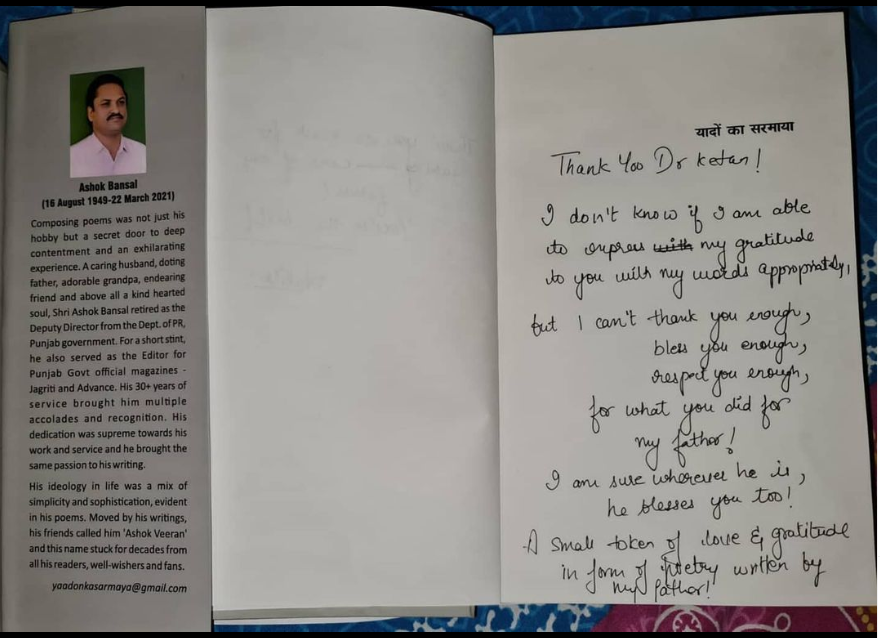 Ashok Bansal
(16 August 1949-22 March 2021)
Composing poems was not just his
hobby but a secret door to deep
contentment and an exhilarating
experience. A caring husband, doting
father, adorable grandpa, endearing
friend and above all a kind hearted
soul, Shri Ashok Bansal retired as the
Deputy Director from the Dept. of PR,
Punjab government. For a short stint,
he also served as the Editor for
Punjab Govt official magazines -
Jagriti and Advance. His 30+ years of
service brought him multiple
accolades and recognition. His
dedication was supreme towards his
work and service and he brought the
same passion to his writing.
His ideology in life was a mix of
simplicity and sophistication, evident
in his poems. Moved by his writings,
his friends called him 'Ashok Veeran'
and this name stuck for decades from
all his readers, well-wishers and fans.
yaadonkasarmaya@gmail.com
यादों का सरमाया
Thank You Dr ketan!
I don't know if I am able
to express with my gratitude
to you with my words appropriately,
but I can't thank you enough,
bless you enough,
respect you enough,
for what you did for
my father!
I am sure wherever he is,
he blesses you too!
A small token of love & gratitude
in form of poetry written by
my father!